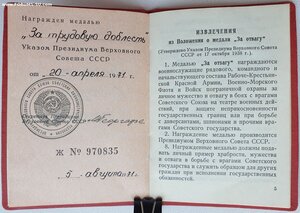 Награжден медалью
„За трудовую доблесть
Указом Президиума Верховного
Совета СССР
от „20" апреля 1971 г.
Ж № 970835
„5" августа 71 г.
ИЗВЛЕЧЕНИЯ
из Положения о медали „За отвагу"
(Утверждено Указом Президиума Верховного Совета
СССР от 17 октября 1938 г.)
1. Медалью „За отвагу" награждаются
военнослужащие рядового, командного и
начальствующего состава Рабоче-Крестьянской
Красной Армии, Военно-Морского
Флота и Войск пограничной охраны за
личное мужество и отвагу в боях с врагами
Советского Союза на театре военных действий,
при защите неприкосновенности
государственных границ или при борьбе
с диверсантами, шпионами и прочими врагами
Советского государства.
2. Награждение медалью производится
Президиумом Верховного Совета СССР.
8. Награжденные медалью должны подавать
личный пример храбрости, мужества
и отваги в борьбе с врагами Советского
государства и при исполнении государственных
обязанностей.
5